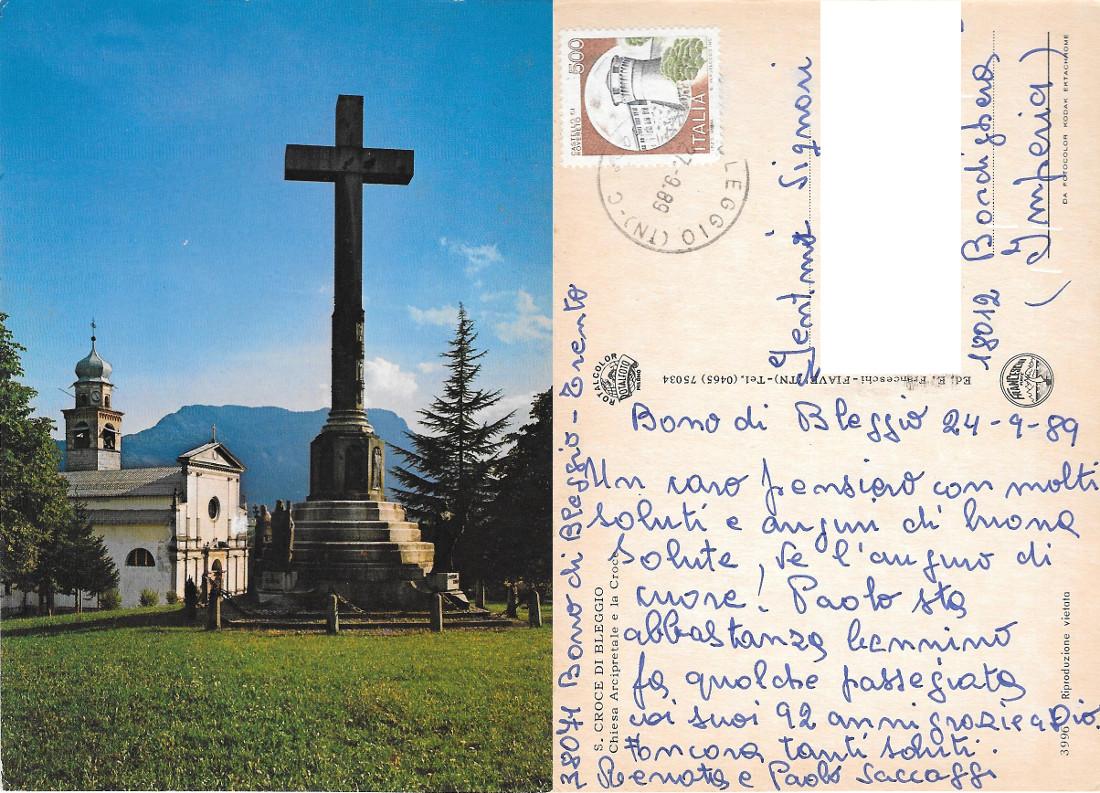 500
CASTELLO DI
ROVERETO
ITALIA
LEGGIO (TN) - C
-9.89
Gentimi Signori
18012 Bordighera
(Imperia)
DA FOTOCOLOR KODAK EKTACHROME
ROTALCOLOR
ROTALFOTO
MILANO
Ed. E. Franceschi - FIAVE' (TN) - Tel. (0465) 75034
FRANCESCHI
Bono di Bleggio 24-9-89
Un caro pensiero con molti
saluti e auguri di buona
Salute, ve l'auguro di
cuore! Paolo sta
abbastanza bennino
fa qualche passegiata
coi suoi 92 anni grazie a Dio.
Ancora tanti saluti.
Renata e Paolo Saccaggi
38071 Bono di Bleggio - Trento
S. CROCE DI BLEGGIO
Chiesa Arcipretale e la Croce
3996
Riproduzione vietata